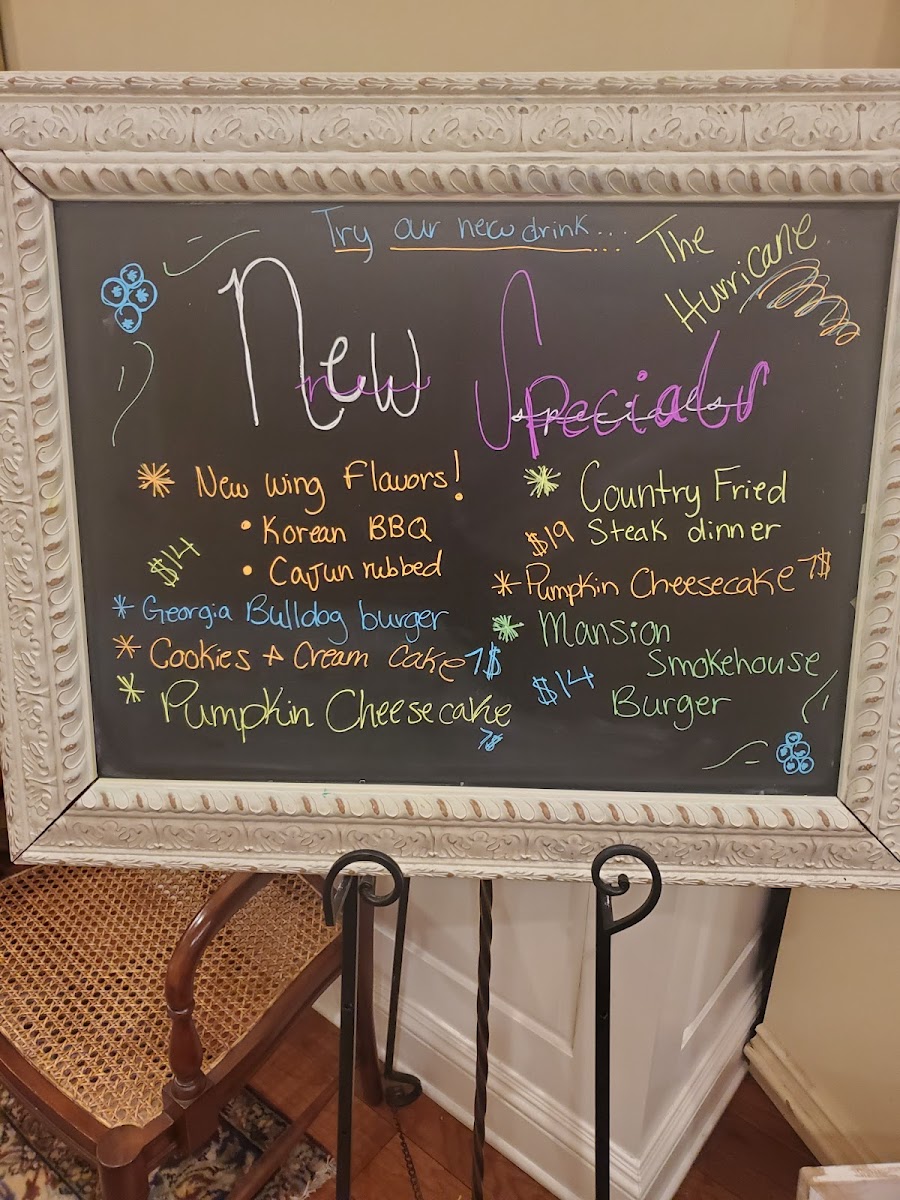 Try our new drink...
The
Hurricane
New Specials
new specials
* New wing Flavors!
• Korean BBQ
• Cajun rubbed
$14
* Georgia Bulldog burger
* Cookies & Cream Cake 7$
* Pumpkin Cheesecake
7$
* Country Fried
$19 Steak dinner
* Pumpkin Cheesecake 7$
* Mansion
Smokehouse
$14 Burger